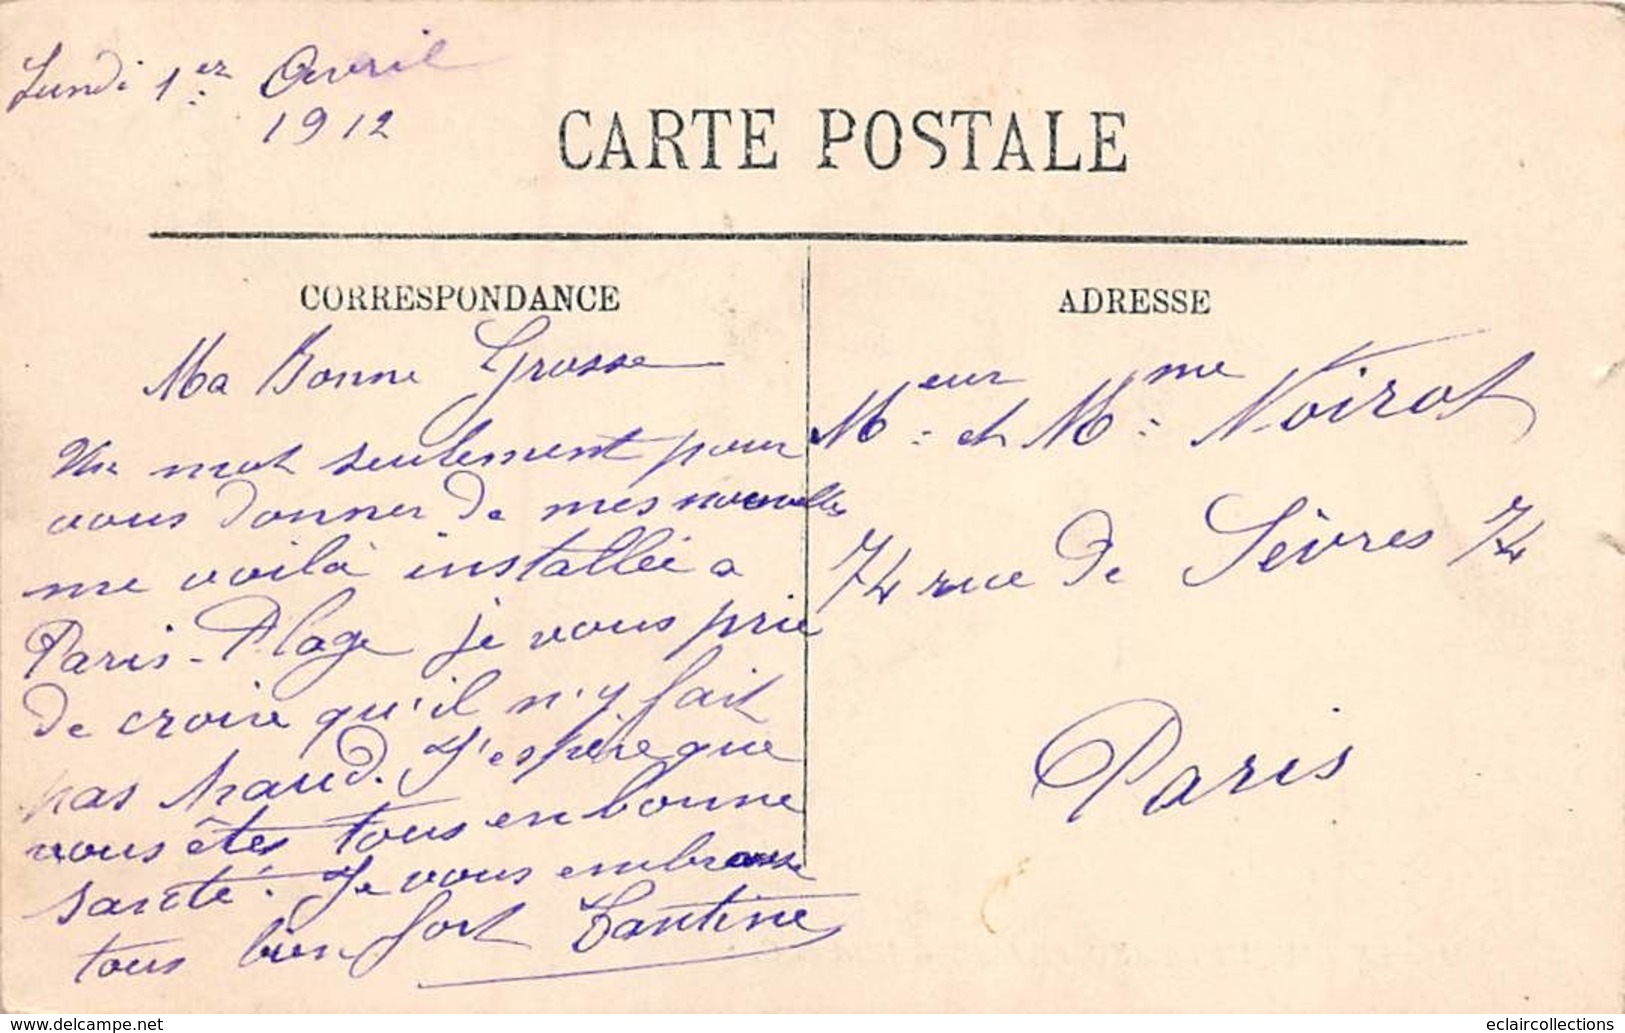 Lundi 1er Avril
1912
CARTE POSTALE
CORRESPONDANCE
Ma Bonne Grosse
Un mot seulement pour
vous donner de mes nouvelles
me voilà installée a
Paris-Plage je vous prie
de croire qu'il n'y fait
pas chaud. J'espère que
vous êtes tous en bonne
santé. Je vous embrasse
tous bien fort Tantine
ADRESSE
Meur et Mme Noirot
74 rue de Sèvres 74
Paris
delcampe.net
eclaircollections